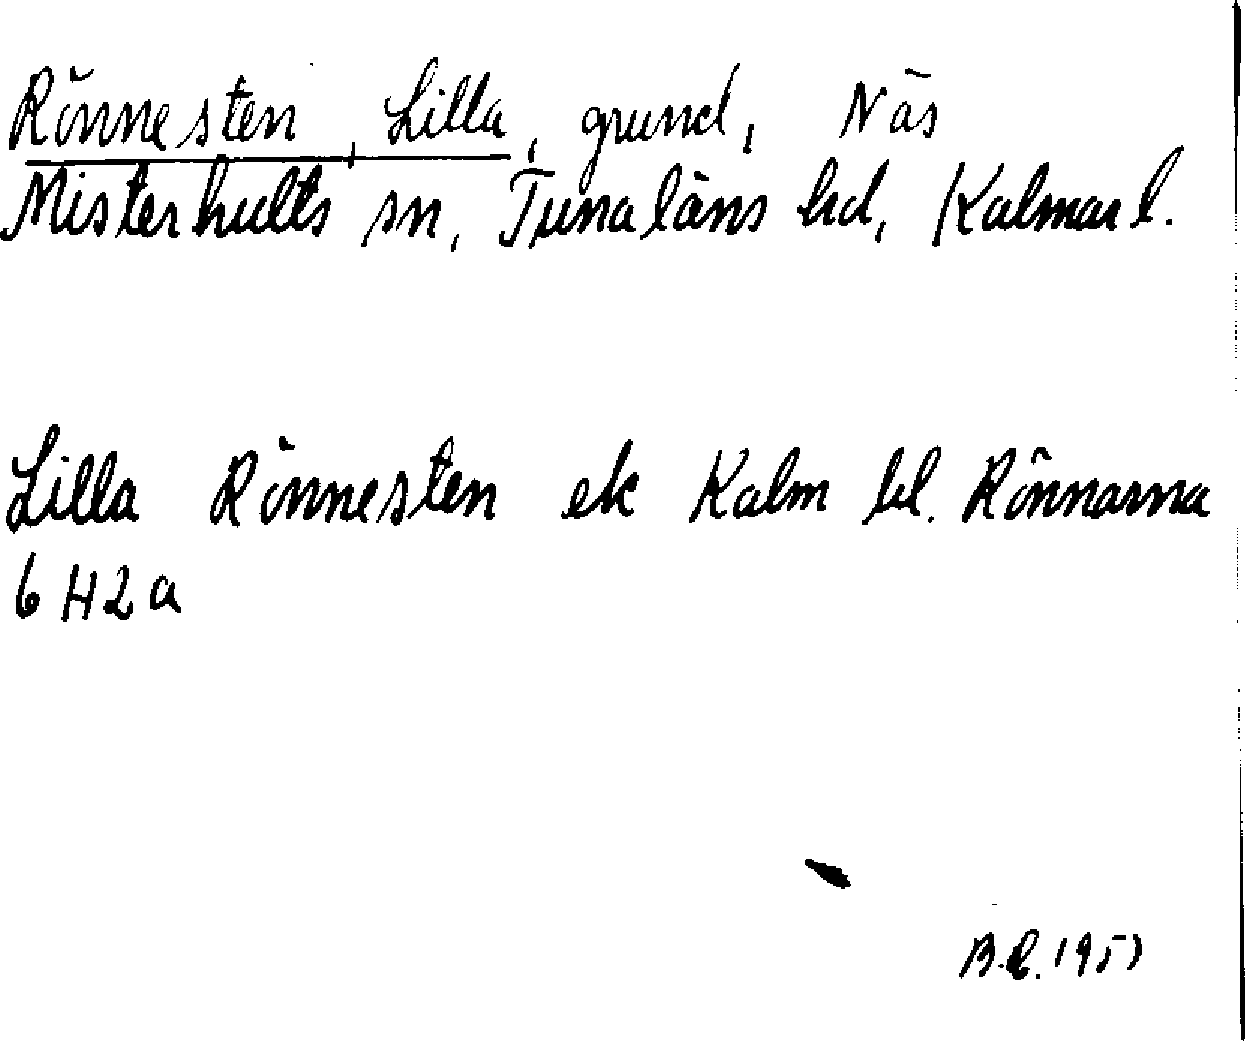 Rönnesten, Lilla, grund, Näs
Misterhults sn, Tunaläns hd, Kalmar l.
Lilla Rönnesten ek Kalm bl. Rönnarna
6 H2a